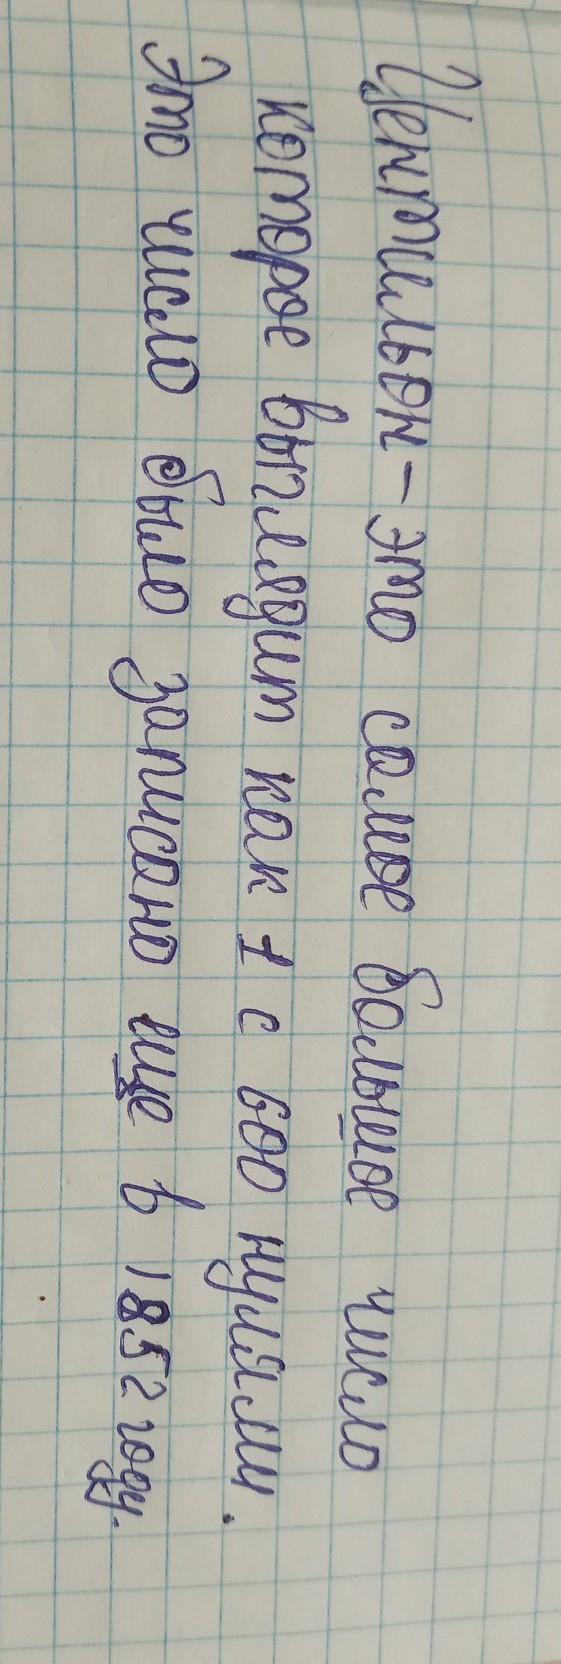 Центильон - это самое большое число
которое выглядит как 1 с 600 нулями.
Это число было записано ище в 1852 году.